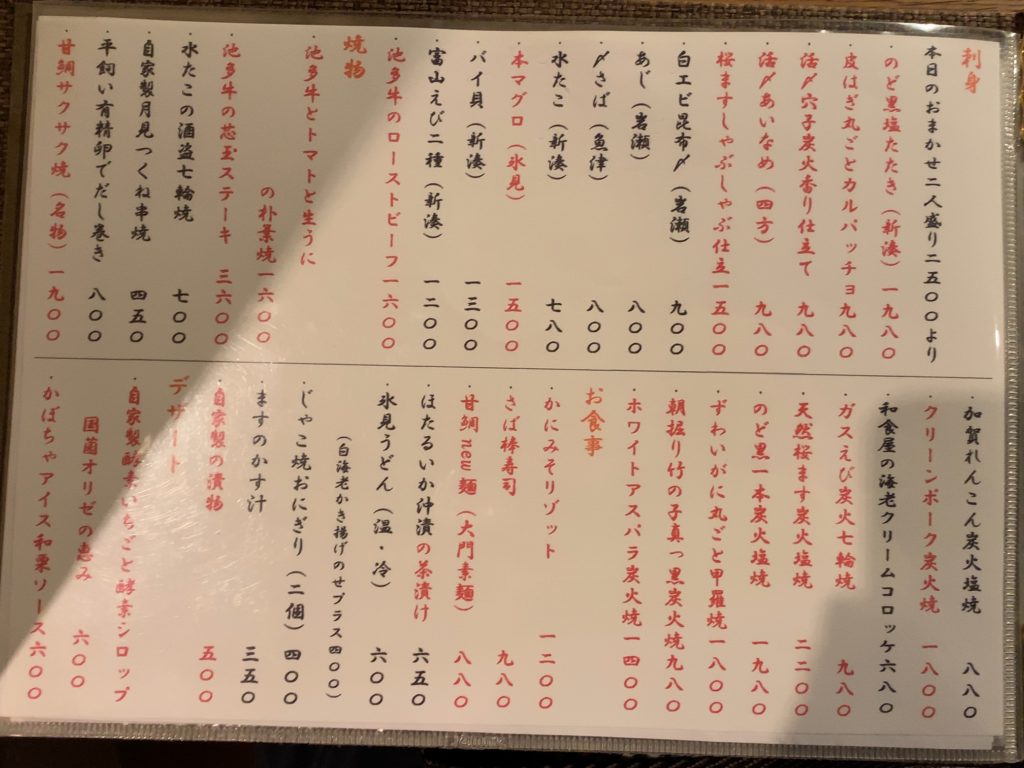 刺身
本日のおまかせ二人盛り二五〇〇より
・のど黒塩たたき（新湊）一九八〇
・皮はぎ丸ごとカルパッチョ九八〇
・活〆穴子炭火香り仕立て九八〇
・活〆あいなめ（四方）九八〇
・桜ますしゃぶしゃぶ仕立一五〇〇
・白エビ昆布〆（岩瀬）九〇〇
・あじ（岩瀬）八〇〇
・〆さば（魚津）八〇〇
・水たこ（新湊）七八〇
・本マグロ（氷見）一五〇〇
・バイ貝（新湊）一三〇〇
・富山えび二種（新湊）一二〇〇
・池多牛のローストビーフ一六〇〇
焼物
・池多牛とトマトと生うに
の朴葉焼一六〇〇
・池多牛の芯玉ステーキ三六〇〇
・水たこの酒盗七輪焼七〇〇
・自家製月見つくね串焼四五〇
・平飼い有精卵でだし巻き八〇〇
・甘鯛サクサク焼（名物）一九〇〇
・加賀れんこん炭火塩焼八八〇
・クリーンポーク炭火焼一八〇〇
・和食屋の海老クリームコロッケ六八〇
・ガスえび炭火七輪焼九八〇
・天然桜ます炭火塩焼二二〇〇
・のど黒一本炭火塩焼一九八〇
・ずわいがに丸ごと甲羅焼一八〇〇
・朝掘り竹の子真っ黒炭火焼九八〇
・ホワイトアスパラ炭火焼一四〇〇
お食事
・かにみそリゾット一二〇〇
・さば棒寿司九八〇
・甘鯛new麺（大門素麺）八八〇
・ほたるいか沖漬の茶漬け六五〇
・氷見うどん（温・冷）六〇〇
（白海老かき揚げのせプラス四〇〇）
・じゃこ焼おにぎり（二個）四〇〇
・ますのかす汁三五〇
・自家製の漬物五〇〇
デザート
・自家製酵素いちごと酵素シロップ
国菌オリゼの恵み六〇〇
・かぼちゃアイス和栗ソース六〇〇